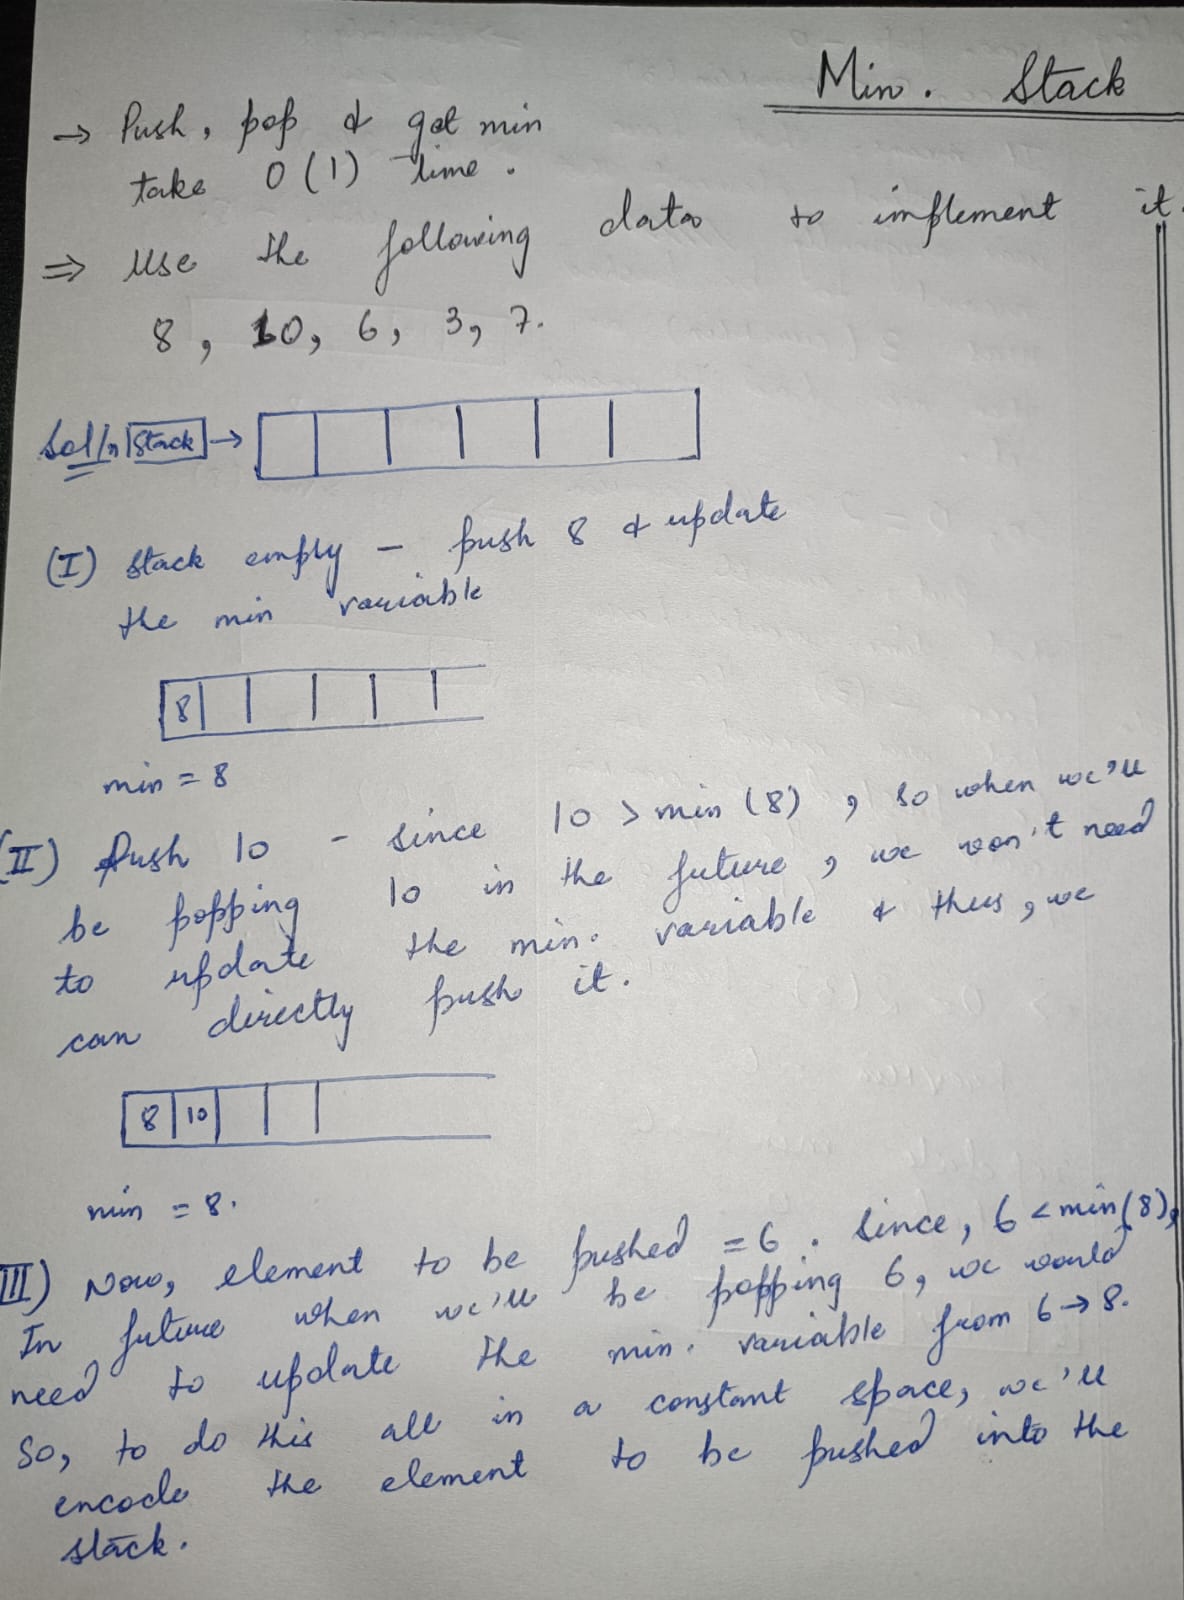 Min. Stack
→ Push, pop & get min
take O(1) time.
⇒ Use the following data to implement it.
8, 10, 6, 3, 7.
Sol/n Stack →
(I) Stack empty - push 8 & update
the min variable
8
min = 8
(II) Push 10 - since 10 > min (8), so when we'll
be popping 10 in the future, we won't need
to update the min. variable & thus, we
can directly push it.
8 10
min = 8.
(III) Now, element to be pushed = 6. Since, 6 < min(8),
In future when we'll be popping 6, we would
need to update the min. variable from 6 → 8.
So, to do this all in a constant space, we'll
encode the element to be pushed into the
stack.